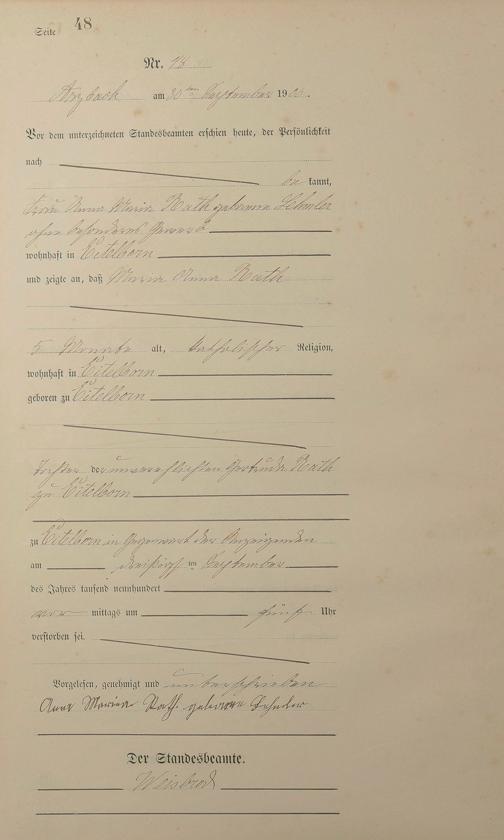 Seite 48
Nr. 48
Arzbach am 30ten September 1900.
Vor dem unterzeichneten Standesbeamten erschien heute, der Persönlichkeit
nach
be kannt,
Frau Anna Maria Rath geborene
ohne besonderes Gewerb
wohnhaft in Eitelborn
und zeigte an, daß Maria Anna Rath
5 Monate alt, katholischer Religion,
wohnhaft in Eitelborn
geboren zu Eitelborn
Tochter der unverehelichten Gertruda Rath
zu Eitelborn
zu Eitelborn in Gegenwart der Anzeigenden
am dreißigsten September
des Jahres tausend neunhundert
vor mittags um fünf Uhr
verstorben sei.
Vorgelesen, genehmigt und unterschrieben
Anna Maria Rath geborene
Der Standesbeamte.
Weisbrod